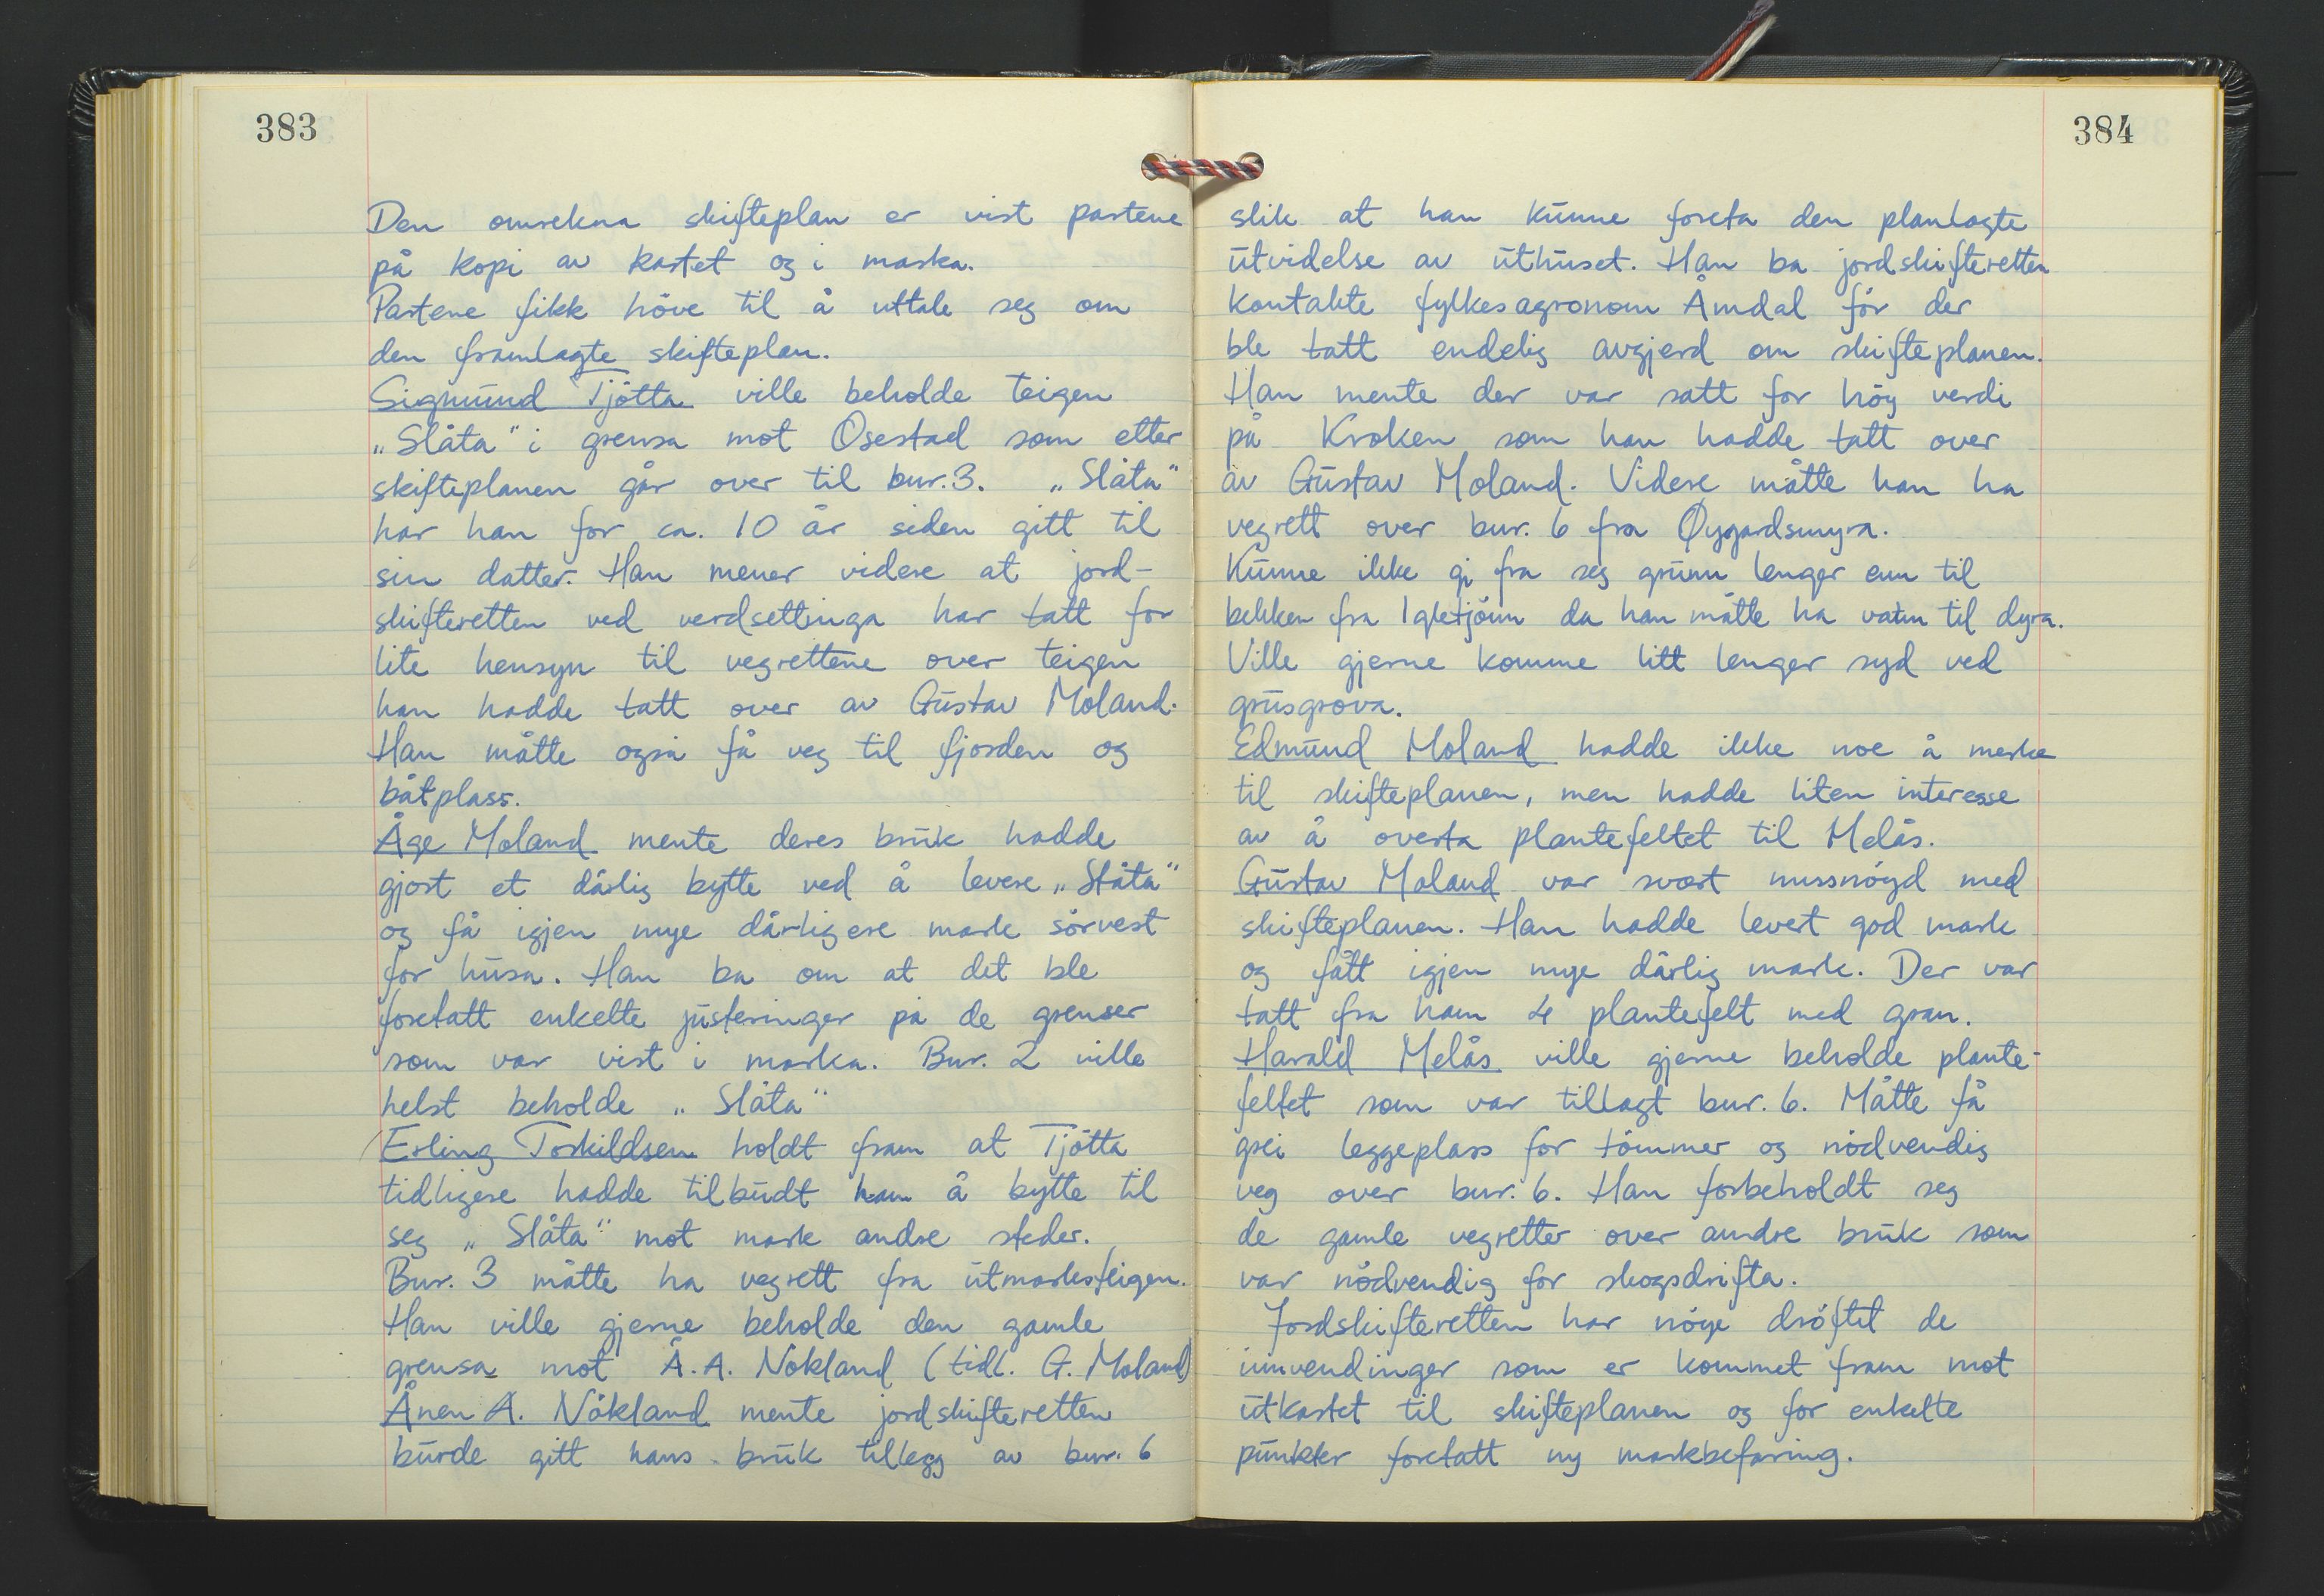 383
Den omrekna skifteplan er vist partene
på kopi av kartet og i marka.
Partene fikk höve til å uttale seg om
den framlagte skifteplan.
Sigmund Tjötta ville beholde teigen
„Slåta" i grensa mot Osestad som etter
skifteplanen går over til bur. 3. „Slåta"
har han for ca. 10 år siden gitt til
sin datter. Han mener videre at jord-
skifteretten ved verdsettinga har tatt for
lite hensyn til vegrettene over teigen
han hadde tatt over av Gustav Moland.
Han måtte også få veg til fjorden og
båtplass.
Åge Moland mente deres bruk hadde
gjort et dårlig bytte ved å levere „Slåta"
og få igjen mye dårligere mark sörvest
for husa. Han ba om at det ble
foretatt enkelte justeringer på de grenser
som var vist i marka. Bur. 2 ville
helst beholde „Slåta"
Erling Torkildsen holdt fram at Tjötta
tidligere hadde tilbudt ham å bytte til
seg „Slåta" mot mark andre steder.
Bur. 3 måtte ha vegrett fra utmarksteigen.
Han ville gjerne beholde den gamle
grensa mot Å. A. Nökland (tidl. G. Moland)
Ånen A. Nökland mente jordskifteretten
burde gitt hans bruk tillegg av bur. 6
384
slik at han kunne foreta den planlagte
utvidelse av uthuset. Han ba jordskifteretten
kontakte fylkesagronom Åmdal för der
ble tatt endelig avgjerd om skifteplanen.
Han mente der var satt for höy verdi
på Kroken som han hadde tatt over
av Gustav Moland. Videre måtte han ha
vegrett over bur. 6 fra Øygardsmyra.
Kunne ikke gi fra seg grunn lenger enn til
bekken fra Igletjönn da han måtte ha vatn til dyra.
Ville gjerne komme litt lenger syd ved
grusgrova.
Edmund Moland hadde ikke noe å merke
til skifteplanen, men hadde liten interesse
av å overta plantefeltet til Melås.
Gustav Moland var svært missnöyd med
skifteplanen. Han hadde levert god mark
og fått igjen mye dårlig mark. Der var
tatt fra ham 4 plantefelt med gran.
Harald Melås ville gjerne beholde plante-
feltet som var tillagt bur. 6. Måtte få
grei leggeplass for tömmer og nödvendig
veg over bur. 6. Han forbeholdt seg
de gamle vegretter over andre bruk som
var nödvendig for skogsdrifta.
Jordskifteretten har nöye dröftet de
innvendinger som er kommet fram mot
utkastet til skifteplanen og for enkelte
punkter foretatt ny markbefaring.